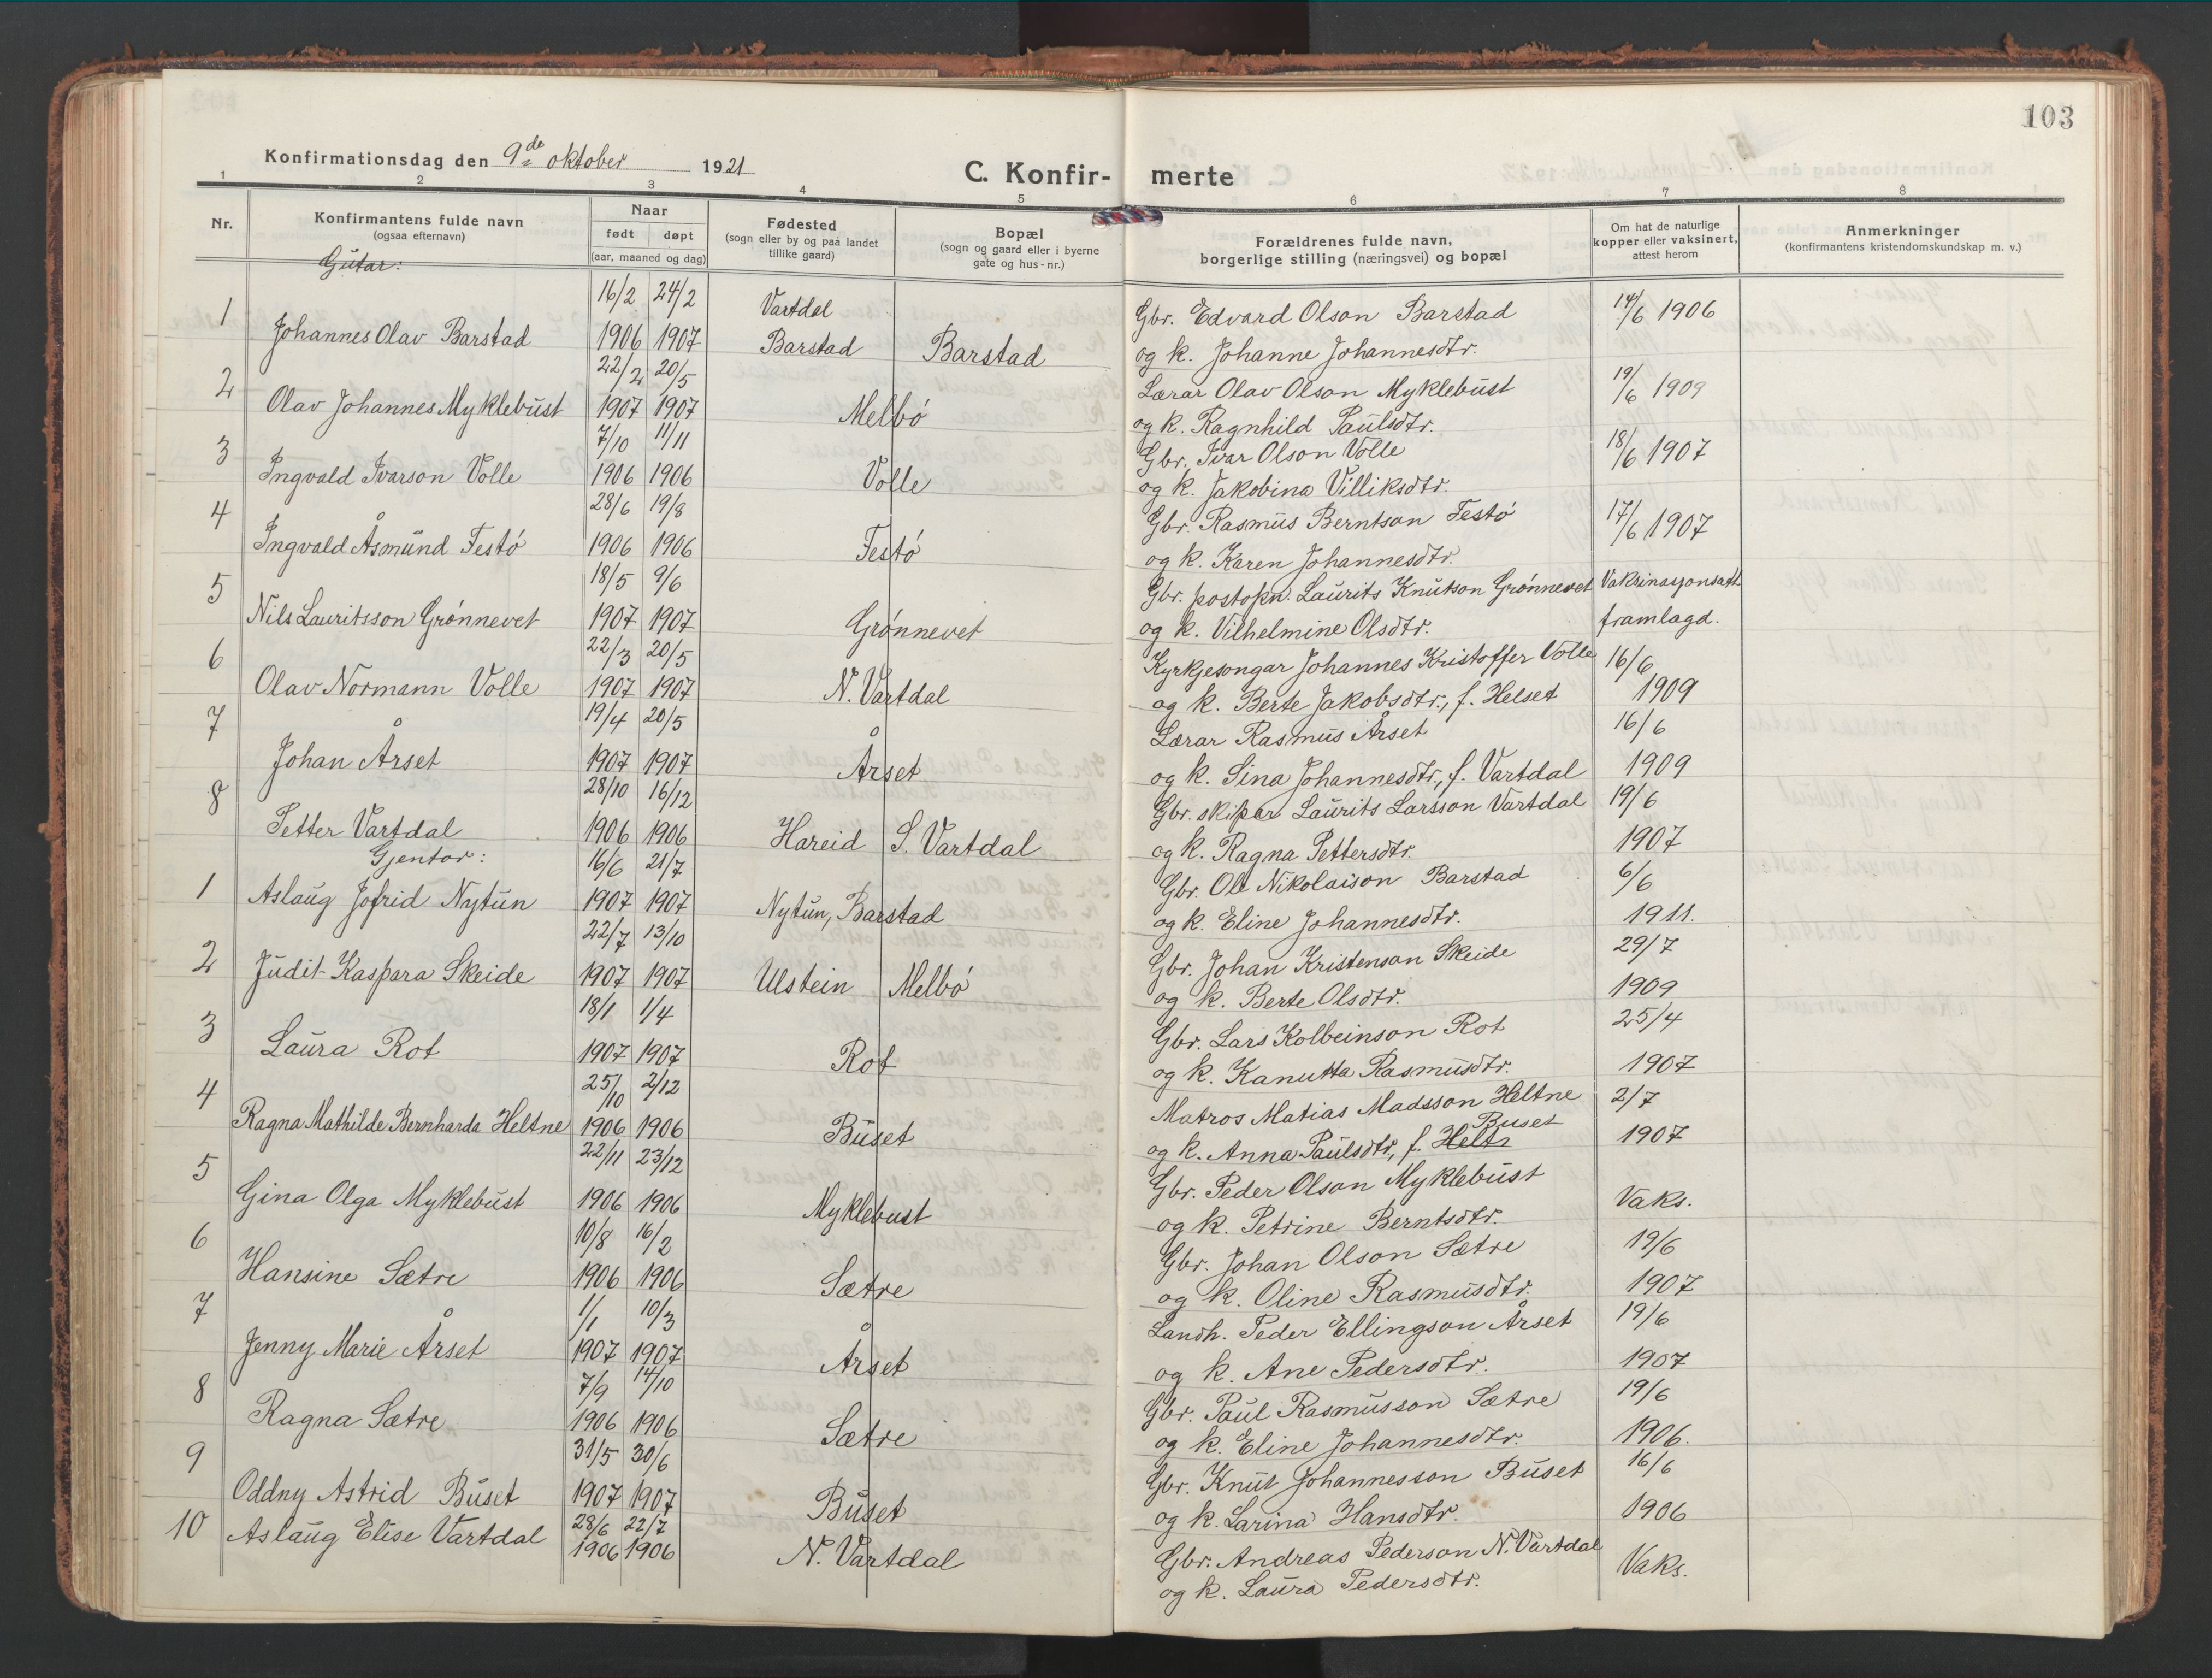 103
Konfirmationsdag den 9de oktober 1921
C. Konfir- merte
1 2 3 4 5 6 7 8
Nr.
Konfirmantens fulde navn
(ogsaa efternavn)
Naar
født døpt
(aar, maaned og dag)
Fødested
(sogn eller by og paa landet
tillike gaard)
Bopæl
(sogn og gaard eller i byerne
gate og hus-nr.)
Forældrenes fulde navn,
borgerlige stilling (næringsvei) og bopæl
Om hat de naturlige
kopper eller vaksinert,
attest herom
Anmerkninger
(konfirmantens kristendomskundskap m. v.)
Gutar:
1 16/2 24/2 Vartdal Gbr. Edvard Olson Barstad 14/6 1906
Johannes Olav Barstad 1906 1907 Barstad Barstad og k. Johanne Johannesdtr.
2 22/2 20/5 Lærar Olav Olson Myklebust 19/6 1909
Olav Johannes Myklebust 1907 1907 Melbó og k. Ragnhild Paulsdtr.
3 7/10 11/11 Gbr. Ivar Olson Volle 18/6 1907
Ingvald Ivarson Volle 1906 1906 Volle og k. Jakobina Villiksdtr.
4 28/6 19/8 Gbr. Rasmus Berntson Festó 17/6 1907
Ingvald Åsmund Festó 1906 1906 Festó og k. Karen Johannesdtr.
5 18/5 9/6 Gbr. postopn. Laurits Knutson Grónnevet Vaksinasjonsatt
Nils Lauritsson Grónnevet 1907 1907 Grónnevet og k. Vilhelmine Olsdtr. framlagd.
6 22/3 20/5 Kyrkjesongar Johannes Kristoffer Volle 16/6
Olav Normann Volle 1907 1907 N. Vartdal og k. Berte Jakobsdtr., f. Helset 1909
7 19/4 20/5 Lærar Rasmus Årset 16/6
Johan Årset 1907 1907 Årset og k. Sina Johannesdtr., f. Vartdal 1909
8 28/10 16/12 Gbr. skipar Laurits Larsson Vartdal 19/6
Petter Vartdal 1906 1906 Hareid S. Vartdal og k. Ragna Pettersdtr. 1907
Gjentor:
1 16/6 21/7 Gbr. Ole Nikolaison Barstad 6/6
Aslaug Jofrid Nytun 1907 1907 Nytun, Barstad og k. Eline Johannesdtr. 1911.
2 22/7 13/10 Gbr. Johan Kristenson Skeide 29/7
Judit Kaspara Skeide 1907 1907 Ulstein Melbó og k. Berte Olsdtr. 1909
3 18/1 1/4 Gbr. Lars Kolbeinson Rot 25/4
Laura Rot 1907 1907 Rot og k. Kanutta Rasmusdtr. 1907
4 25/10 2/12 Matros Matias Madsson Heltne 2/7
Ragna Mathilde Bernharda Heltne 1906 1906 Buset og k. Anna Paulsdtr, f. Buset 1907
5 22/11 23/12 Gbr. Peder Olson Myklebust
Gina Olga Myklebust 1906 1906 Myklebust og k. Petrine Berntsdtr. Vaks.
6 10/8 16/2 Gbr. Johan Olson Sætre 19/6
Hansine Sætre 1906 1906 Sætre og k. Oline Rasmusdtr. 1907
7 1/1 10/3 Landh. Peder Ellingson Årset 19/6
Jenny Marie Årset 1907 1907 Årset og k. Ane Pedersdtr. 1907
8 7/9 14/10 Gbr. Paul Rasmusson Sætre 19/6
Ragna Sætre 1906 1906 Sætre og k. Eline Johannesdtr. 1906.
9 31/5 30/6 Gbr. Knut Johannesson Buset 16/6
Oddny Astrid Buset 1907 1907 Buset og k. Larina Hansdtr. 1906
10 28/6 22/7 Gbr. Andreas Pederson N. Vartdal
Aslaug Elise Vartdal 1906 1906 N. Vartdal og k. Laura Pedersdtr. Vaks.